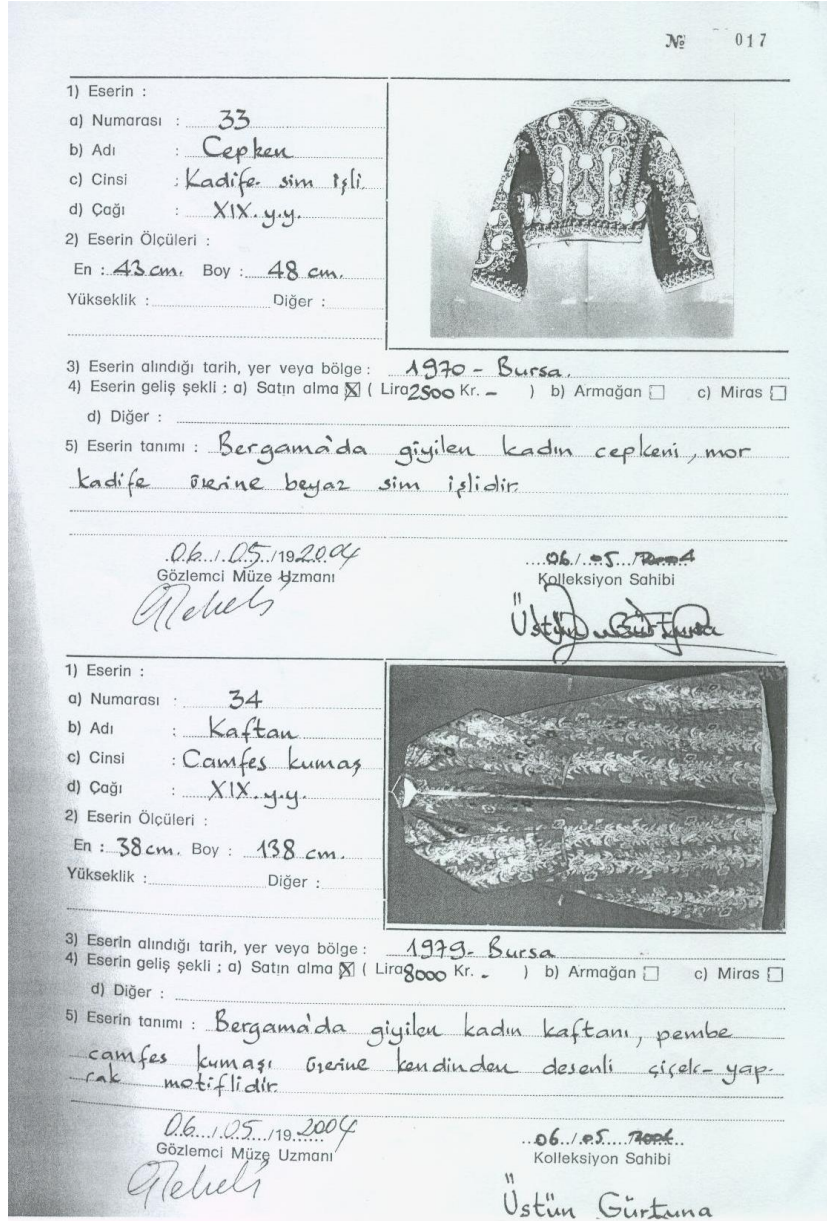 № 017
1) Eserin :
a) Numarası : 33
b) Adı : Cepken
c) Cinsi : Kadife sim işli
d) Çağı : XIX. y.y.
2) Eserin Ölçüleri :
En : 43 cm. Boy : 48 cm.
Yükseklik : Diğer :
3) Eserin alındığı tarih, yer veya bölge : 1970 - Bursa.
4) Eserin geliş şekli : a) Satın alma ☒ ( Lira 2500 Kr. - ) b) Armağan ☐ c) Miras ☐
d) Diğer :
5) Eserin tanımı : Bergama'da giyilen kadın cepkeni, mor
kadife üzerine beyaz sim işlidir.
06 / 05 / 19 2004 06 / 05 / 2004
Gözlemci Müze Uzmanı Kolleksiyon Sahibi
Üstün Gürtuna
1) Eserin :
a) Numarası : 34
b) Adı : Kaftan
c) Cinsi : Camfes kumaş
d) Çağı : XIX. y.y.
2) Eserin Ölçüleri :
En : 38 cm. Boy : 138 cm.
Yükseklik : Diğer :
3) Eserin alındığı tarih, yer veya bölge : 1979 - Bursa
4) Eserin geliş şekli : a) Satın alma ☒ ( Lira 8000 Kr. - ) b) Armağan ☐ c) Miras ☐
d) Diğer :
5) Eserin tanımı : Bergama'da giyilen kadın kaftanı, pembe
camfes kumaşı üzerine kendinden desenli çiçek - yap-
rak motiflidir.
06 / 05 / 19 2004 06 / 05 2004
Gözlemci Müze Uzmanı Kolleksiyon Sahibi
Üstün Gürtuna